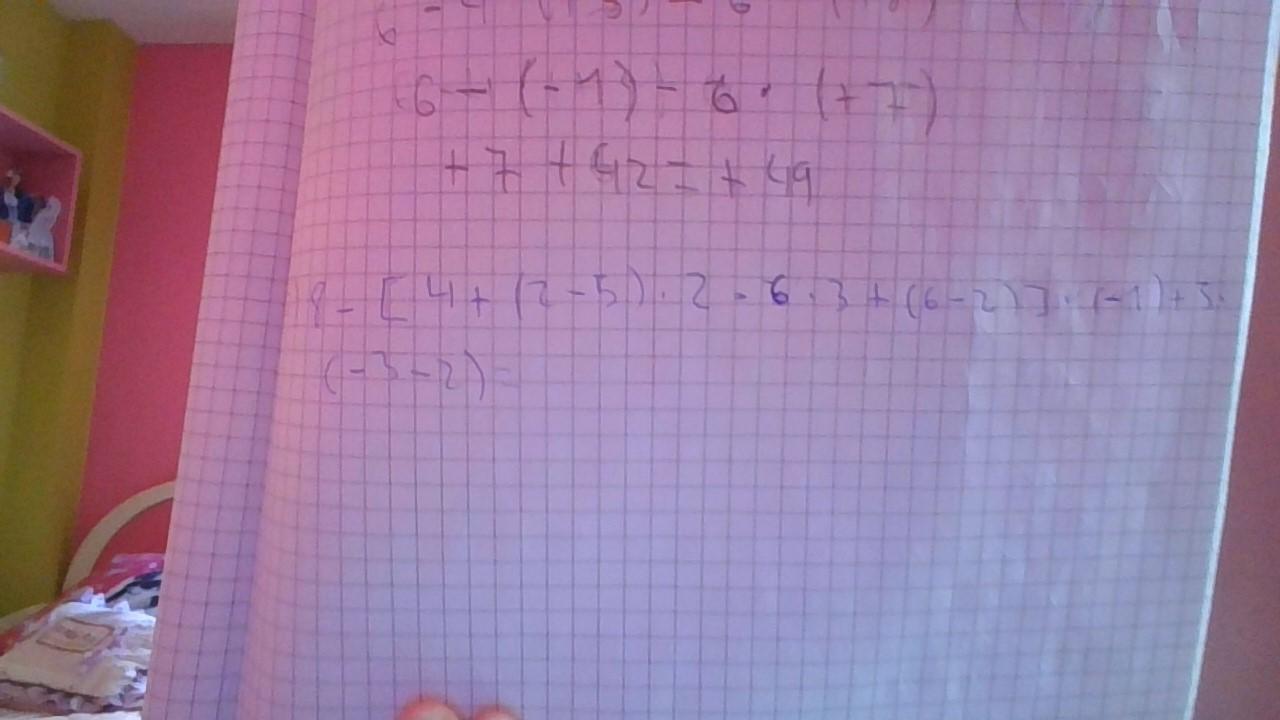 6 - 4 (+3) - 6
6 + (-1) - 6 · (+7)
+7 + 42 = +49
8 - [4 + (2-5) · 2 - 6 · 3 + (6-2)] · (-1) + 5 ·
(-3-2) =